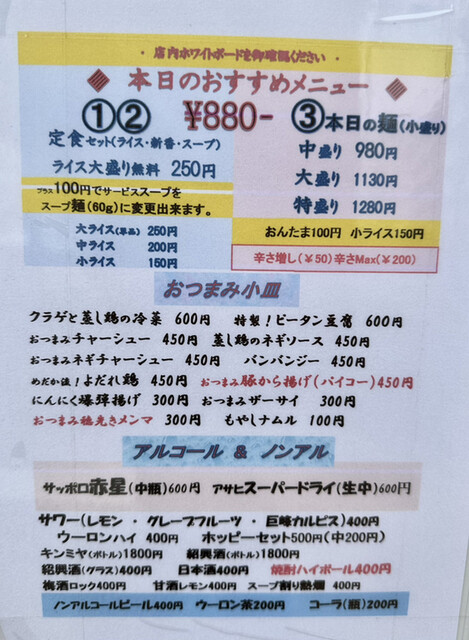 ・店内ホワイトボードを御確認ください・
◆ 本日のおすすめメニュー ◆
①② ¥880- ③本日の麺(小盛り)
定食セット(ライス・新香・スープ)
ライス大盛り無料 250円
プラス100円でサービススープを
スープ麺(60g)に変更出来ます。
大ライス(単品) 250円
中ライス 200円
小ライス 150円
中盛り 980円
大盛り 1130円
特盛り 1280円
おんたま100円 小ライス150円
辛さ増し(¥50)辛さMax(¥200)
おつまみ小皿
クラゲと蒸し鶏の冷菜 600円 特製!ピータン豆腐 600円
おつまみチャーシュー 450円 蒸し鶏のネギソース 450円
おつまみネギチャーシュー 450円 バンバンジー 450円
めだか流!よだれ鶏 450円 おつまみ豚から揚げ(パイコー)450円
にんにく爆弾揚げ 300円 おつまみザーサイ 300円
おつまみ穂先きメンマ 300円 もやしナムル 100円
アルコール & ノンアル
サッポロ赤星(中瓶)600円 アサヒスーパードライ(生中)600円
サワー(レモン・グレープフルーツ・巨峰カルピス)400円
ウーロンハイ 400円 ホッピーセット500円(中200円)
キンミヤ(ボトル)1800円 紹興酒(ボトル)1800円
紹興酒(グラス)400円 日本酒400円 焼酎ハイボール400円
梅酒ロック400円 甘酒レモン400円 スープ割り熱燗 400円
ノンアルコールビール400円 ウーロン茶200円 コーラ(瓶)200円